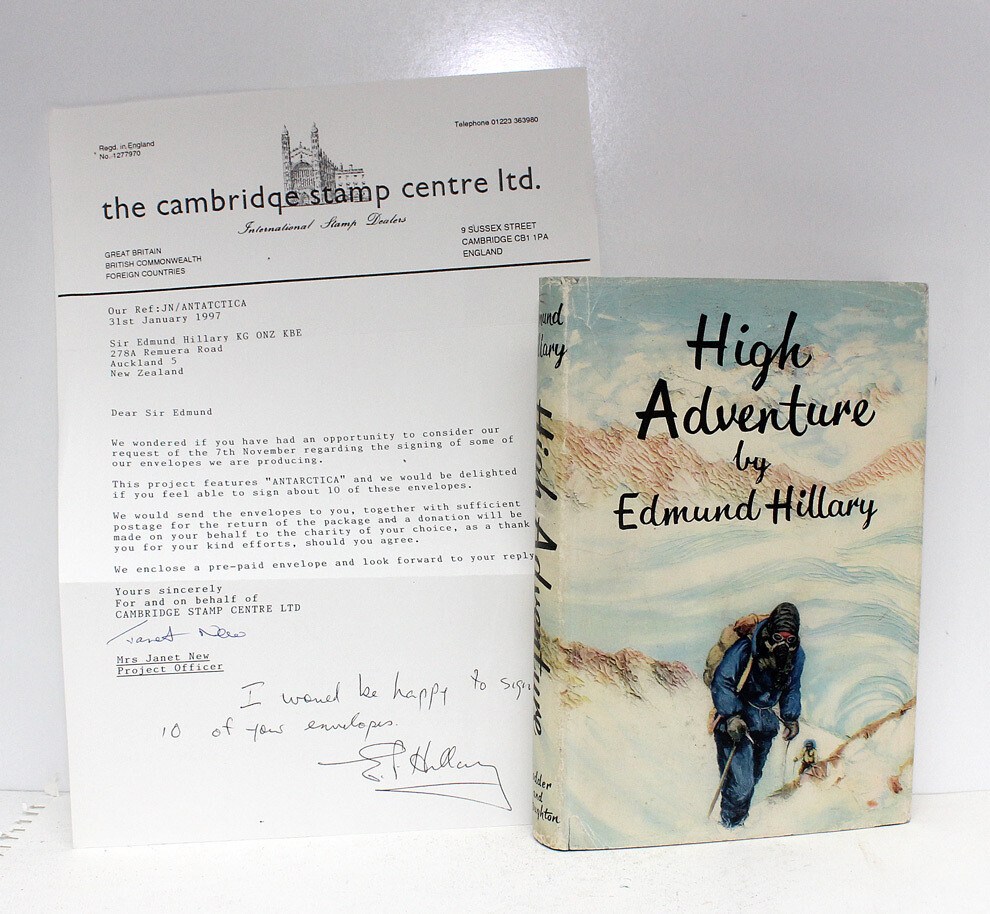 Regd. in England
No. 1277970
Telephone 01223 363980
the cambridge stamp centre ltd.
International Stamp Dealers
GREAT BRITAIN
BRITISH COMMONWEALTH
FOREIGN COUNTRIES
9 SUSSEX STREET
CAMBRIDGE CB1 1PA
ENGLAND
Our Ref:JN/ANTATCTICA
31st January 1997
Sir Edmund Hillary KG ONZ KBE
278A Remuera Road
Auckland 5
New Zealand
Dear Sir Edmund
We wondered if you have had an opportunity to consider our
request of the 7th November regarding the signing of some of
our envelopes we are producing.
This project features "ANTARCTICA" and we would be delighted
if you feel able to sign about 10 of these envelopes.
We would send the envelopes to you, together with sufficient
postage for the return of the package and a donation will be
made on your behalf to the charity of your choice, as a thank
you for your kind efforts, should you agree.
We enclose a pre-paid envelope and look forward to your reply
Yours sincerely
For and on behalf of
CAMBRIDGE STAMP CENTRE LTD
Janet New
Mrs Janet New
Project Officer
I would be happy to sign
10 of your envelopes.
E.P. Hillary
mund
llary
High Adventure
dder
and
ughton
High
Adventure
by
Edmund Hillary